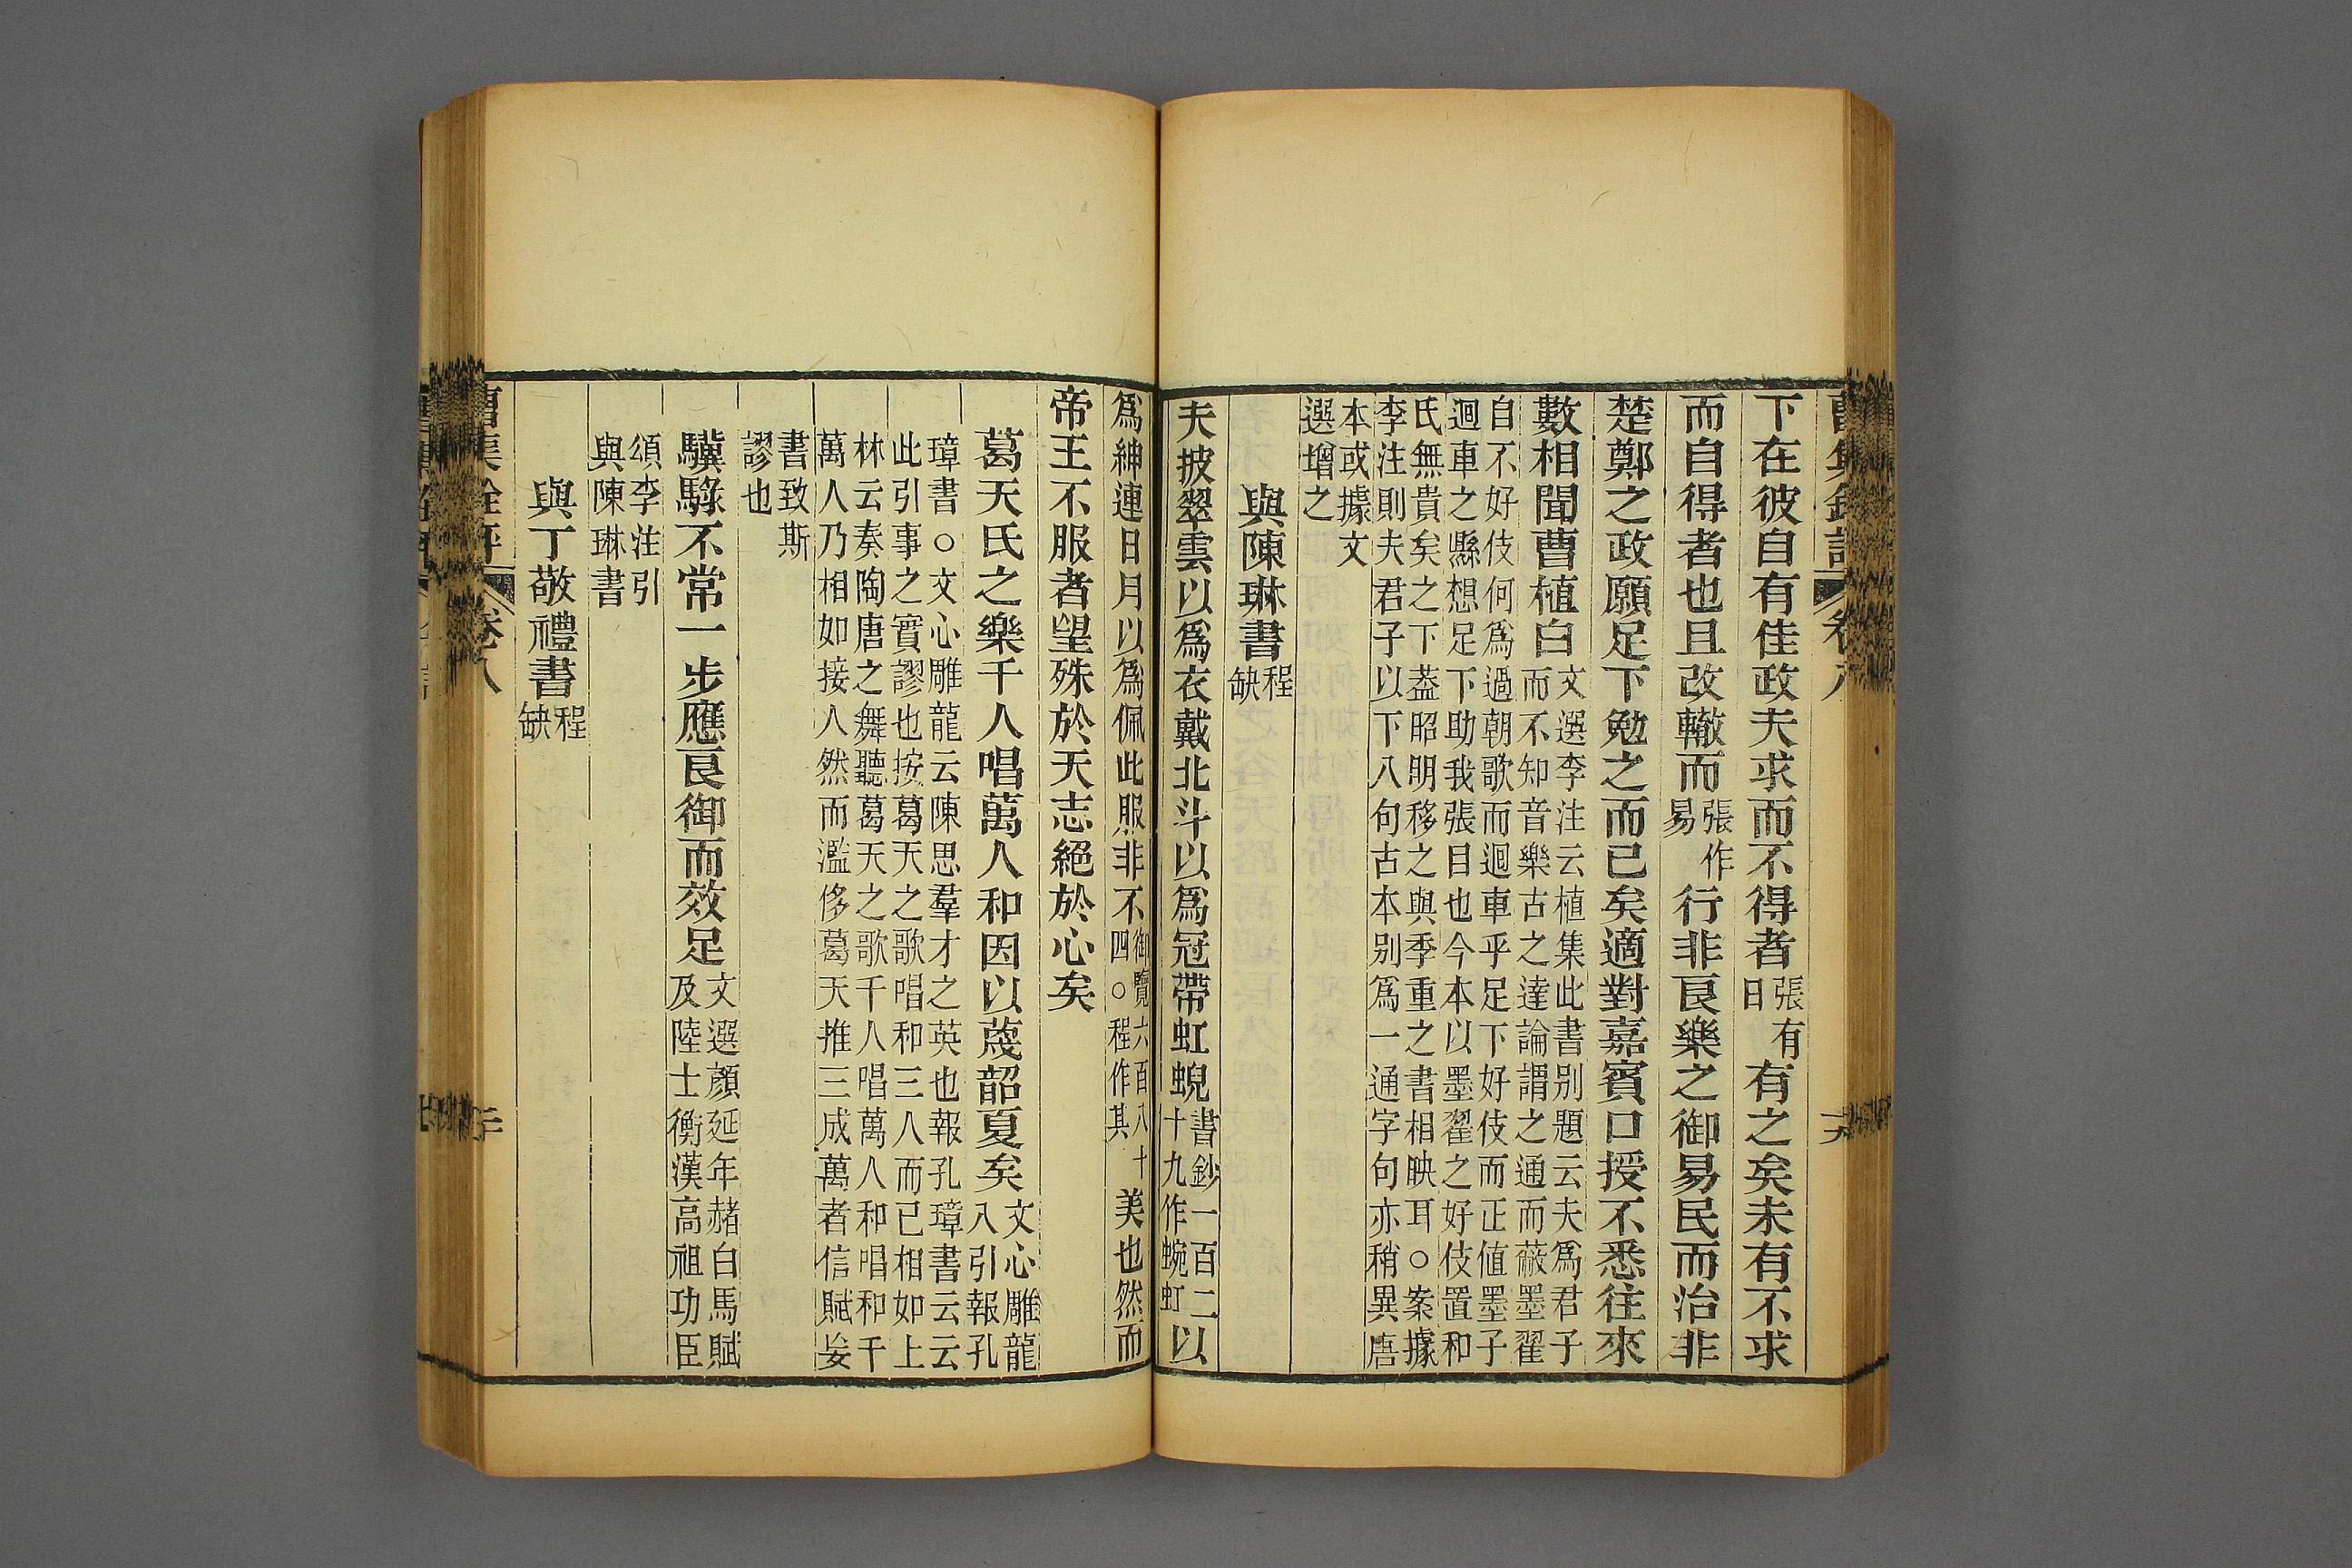 下在彼自有佳政夫求而不得者張有曰有之矣未有不求
而自得者也且改轍而張作易行非良樂之御易民而治非
楚鄭之政願足下勉之而已矣適對嘉賓口授不悉往來
數相聞曹植白文選李注云植集此書别題云夫爲君子
而不知音樂古之達論謂之通而蔽墨翟
自不好伎何爲過朝歌而迴車乎足下好伎而正値墨子
迴車之縣想足下助我張目也今本以墨翟之好伎置和
氏無貴矣之下葢昭明移之與季重之書相映耳○案據
李注則夫君子以下八句古本别爲一通字句亦稍異唐
本或據文
選增之
與陳琳書程缺
夫披翠雲以爲衣戴北斗以爲冠帶虹蜺書鈔一百二十九作蜿虹以
爲紳連日月以爲佩此服非不御覽六百八十四○程作其美也然而
帝王不服者望殊於天志絕於心矣
葛天氏之樂千人唱萬人和因以蔑韶夏矣文心雕龍
入引報孔
璋書○文心雕龍云陳思羣才之英也報孔璋書云云
此引事之實謬也按葛天之歌唱和三人而已相如上
林云奏陶唐之舞聽葛天之歌千人唱萬人和唱和千
萬人乃相如接人然而濫侈葛天推三成萬者信賦妄
書致斯
謬也
驥騄不常一步應良御而效足文選顏延年赭白馬賦
及陸士衡漢高祖功臣
頌李注引
與陳琳書
與丁敬禮書程缺
曹集銓評
卷八